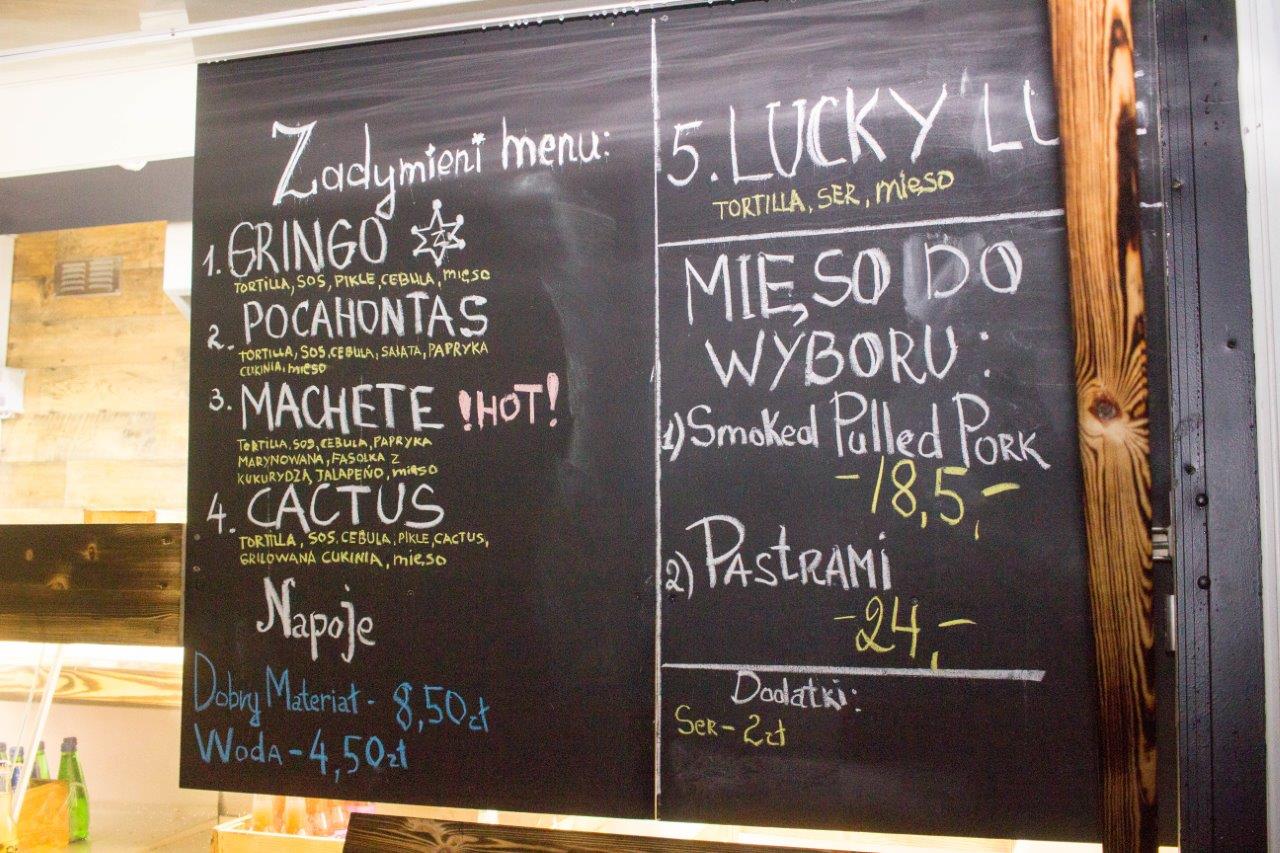 Zadymieni menu:
1. GRINGO
TORTILLA, SOS, PIKLE, CEBULA, mięso
2. POCAHONTAS
TORTILLA, SOS, CEBULA, SAŁATA, PAPRYKA
CUKINIA, mięso
3. MACHETE !HOT!
TORTILLA, SOS, CEBULA, PAPRYKA
MARYNOWANA, FASOLKA Z
KUKURYDZĄ, JALAPEÑO, mięso
4. CACTUS
TORTILLA, SOS, CEBULA, PIKLE, CACTUS,
GRILOWANA CUKINIA, mięso
Napoje
Dobry Materiał - 8,50 zł
Woda - 4,50 zł
5. LUCKY LU
TORTILLA, SER, mięso
MIĘSO DO
WYBORU:
1) Smoked Pulled Pork
-18,5,-
2) Pastrami
-24,-
Dodatki:
Ser - 2 zł